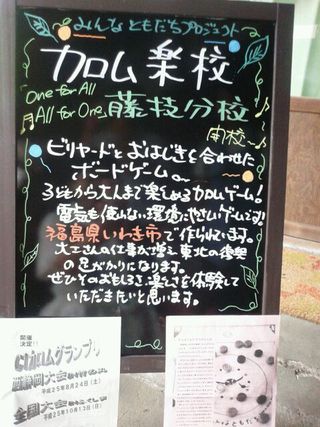 みんなともだちプロジェクト
カロム楽校
One for All
All for One
藤枝分校
開校〜♪
ビリヤードとおはじきを合わせた
ボードゲーム。
子どもから大人まで楽しめるカロムゲーム!
電気も使わない環境にやさしいゲームです!
福島県いわき市で作られています。
大工さんの仕事が増え東北の復興
の足がかりになります。
ぜひそのおもしろさ、楽しさを体験して
いただきたいと思います。
開催
決定!!
カロムグランプリ
静岡大会
平成25年8月24日(土)
全国大会
平成25年10月13日(日)
ともだち